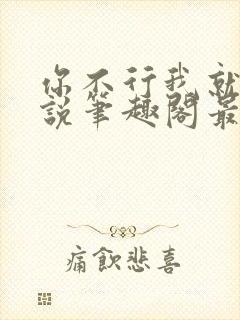 你不行我就
説筆趣閣最
痛飲悲喜